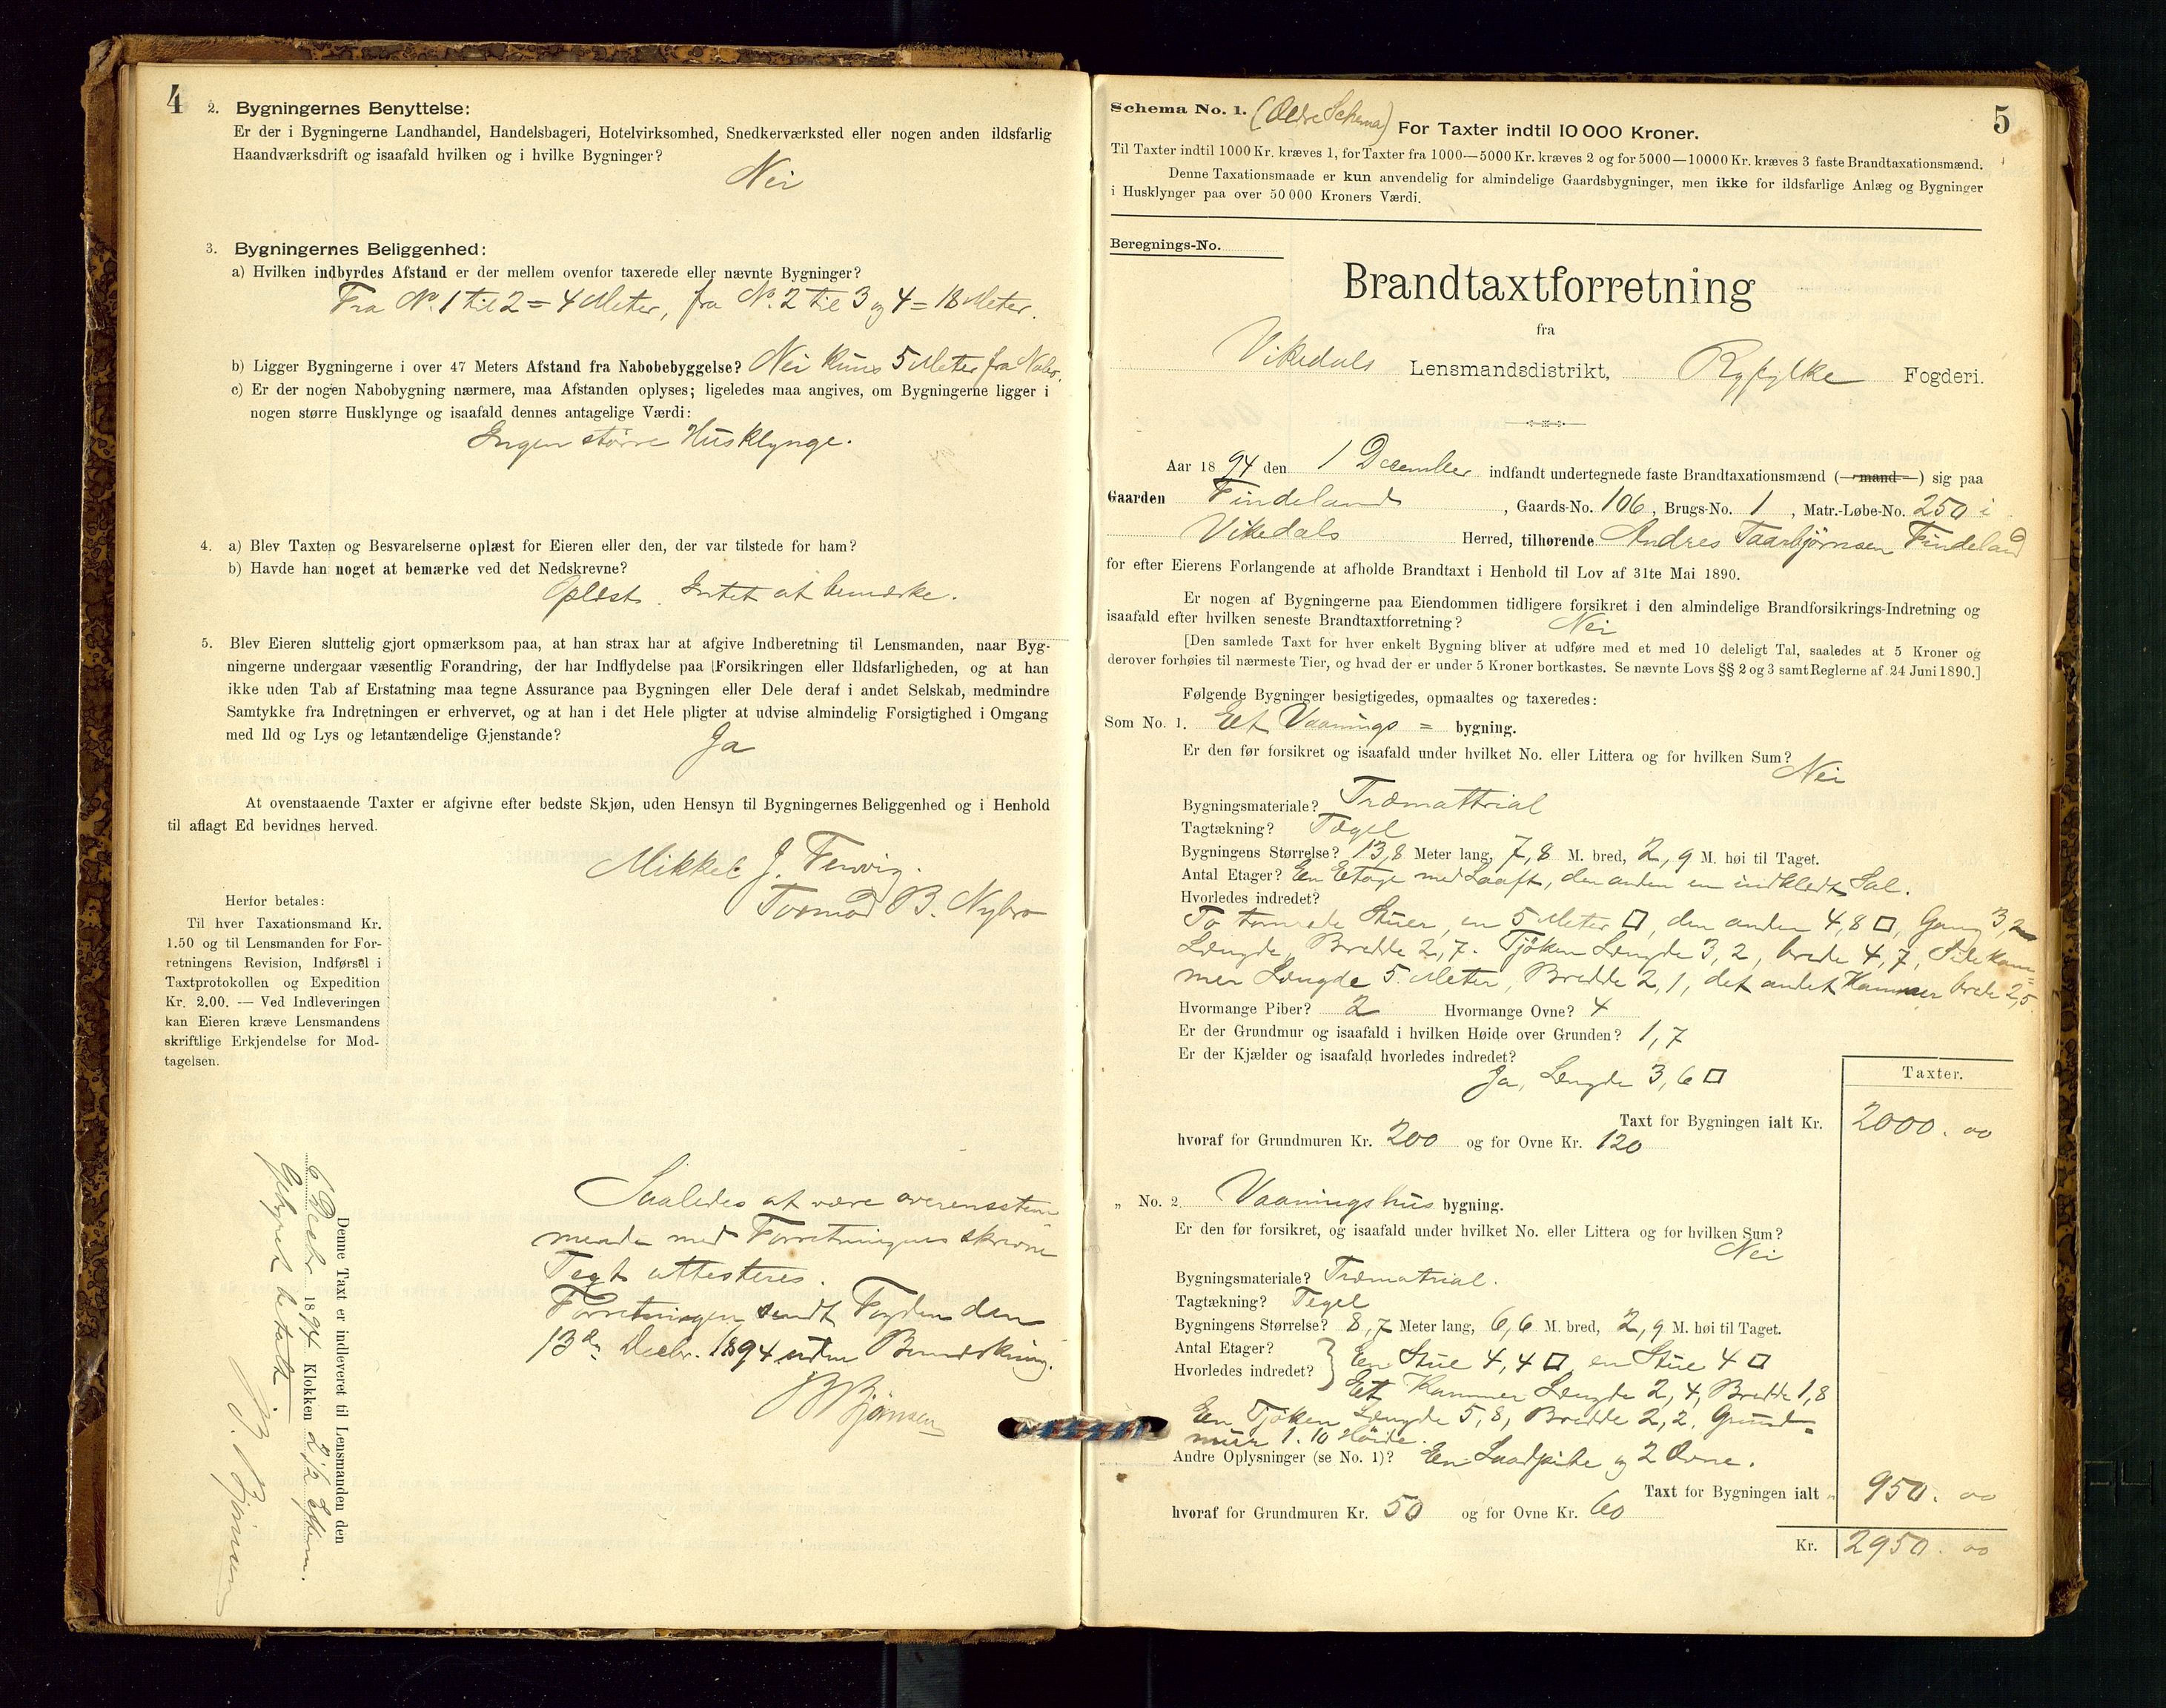 4
2. Bygningernes Benyttelse:
Er der i Bygningerne Landhandel, Handelsbageri, Hotelvirksomhed, Snedkerværksted eller nogen anden ildsfarlig
Haandværksdrift og isaafald hvilken og i hvilke Bygninger?
Nei
3. Bygningernes Beliggenhed:
a) Hvilken indbyrdes Afstand er der mellem ovenfor taxerede eller nævnte Bygninger?
Fra No. 1 til 2 = 4 Meter, fra No. 2 til 3 og 4 = 18 Meter.
b) Ligger Bygningerne i over 47 Meters Afstand fra Nabobebyggelse? Nei kuns 5 Meter fra Nabo.
c) Er der nogen Nabobygning nærmere, maa Afstanden oplyses; ligeledes maa angives, om Bygningerne ligger i
nogen større Husklynge og isaafald dennes antagelige Værdi:
Ingen större Husklynge.
4. a) Blev Taxten og Besvarelserne oplæst for Eieren eller den, der var tilstede for ham?
b) Havde han noget at bemærke ved det Nedskrevne?
Oplæst. Intet at bemærke.
5. Blev Eieren sluttelig gjort opmærksom paa, at han strax har at afgive Indberetning til Lensmanden, naar Byg-
ningerne undergaar væsentlig Forandring, der har Indflydelse paa Forsikringen eller Ildsfarligheden, og at han
ikke uden Tab af Erstatning maa tegne Assurance paa Bygningen eller Dele deraf i andet Selskab, medmindre
Samtykke fra Indretningen er erhvervet, og at han i det Hele pligter at udvise almindelig Forsigtighed i Omgang
med Ild og Lys og letantændelige Gjenstande?
Ja
At ovenstaaende Taxter er afgivne efter bedste Skjøn, uden Hensyn til Bygningernes Beliggenhed og i Henhold
til aflagt Ed bevidnes herved.
Mikkel J. Fenvig.
Tormod B. Nybro
Herfor betales:
Til hver Taxationsmand Kr.
1.50 og til Lensmanden for For-
retningens Revision, Indførsel i
Taxtprotokollen og Expedition
Kr. 2.00. — Ved Indleveringen
kan Eieren kræve Lensmandens
skriftlige Erkjendelse for Mod-
tagelsen.
Denne Taxt er indleveret til Lensmanden den
6 Decbr 1894 Klokken 2 1/2 Efterm.
Gebyret betalt
B. Bjørnsen
Saaledes at være overensstem-
mende med Forretningens skrevne
Text attesteres.
Forretningen sendt Fogden den
13de Decbr. 1894 uden Bemærkning.
B Bjørnsen
5
Schema No. 1. (Ældre Schema) For Taxter indtil 10 000 Kroner.
Til Taxter indtil 1000 Kr. kræves 1, for Taxter fra 1000—5000 Kr. kræves 2 og for 5000—10000 Kr. kræves 3 faste Brandtaxationsmænd.
Denne Taxationsmaade er kun anvendelig for almindelige Gaardsbygninger, men ikke for ildsfarlige Anlæg og Bygninger
i Husklynger paa over 50 000 Kroners Værdi.
Beregnings-No.
Brandtaxtforretning
fra
Vikedals Lensmandsdistrikt, Ryfylke Fogderi.
Aar 1894 den 1 December indfandt undertegnede faste Brandtaxationsmænd (mand) sig paa
Gaarden Findeland, Gaards-No. 106, Brugs-No. 1, Matr.-Løbe-No. 250 i
Vikedals Herred, tilhørende Andres Taarbjørnsen Findeland
for efter Eierens Forlangende at afholde Brandtaxt i Henhold til Lov af 31te Mai 1890.
Er nogen af Bygningerne paa Eiendommen tidligere forsikret i den almindelige Brandforsikrings-Indretning og
isaafald efter hvilken seneste Brandtaxtforretning? Nei
[Den samlede Taxt for hver enkelt Bygning bliver at udføre med et med 10 deleligt Tal, saaledes at 5 Kroner og
derover forhøies til nærmeste Tier, og hvad der er under 5 Kroner bortkastes. Se nævnte Lovs §§ 2 og 3 samt Reglerne af 24 Juni 1890.]
Følgende Bygninger besigtigedes, opmaaltes og taxeredes:
Som No. 1. Et Vaanings = bygning.
Er den før forsikret og isaafald under hvilket No. eller Littera og for hvilken Sum?
Nei
Bygningsmateriale? Træmattrial
Tagtækning? Tægel
Bygningens Størrelse? 13,8 Meter lang, 7,8 M. bred, 2,9 M. høi til Taget.
Antal Etager? Een Etage med Laaft, den anden en indkledt Sal.
Hvorledes indredet?
To tømrede Stuer, en 5 Meter □, den anden 4,8 □, Gang 3,2
Længde, Bredde 2,7. Tjøken Længde 3,2, brede 4,7, Silekam=
mer Længde 5 Meter, Bredde 2,1, det andet Kammer brede 2,5
Hvormange Piber? 2 Hvormange Ovne? 4
Er der Grundmur og isaafald i hvilken Høide over Grunden? 1,7
Er der Kjælder og isaafald hvorledes indredet?
Ja, Længde 3,6 □
Taxter.
Taxt for Bygningen ialt Kr. 2000. 00
hvoraf for Grundmuren Kr. 200 og for Ovne Kr. 120
„ No. 2. Vaaningshus bygning.
Er den før forsikret, og isaafald under hvilket No. eller Littera og for hvilken Sum?
Nei
Bygningsmateriale? Træmatrial.
Tagtækning? Tegel
Bygningens Størrelse? 8,7 Meter lang, 6,6 M. bred, 2,9 M. høi til Taget.
Antal Etager?
Hvorledes indredet? Een Stue 4,4 □, en Stue 4 □
Et Kammer Længde 2,4, Bredde 1,8
Een Tjøken Længde 5,8, Bredde 2,2. Grund=
muur 1.10 Höide.
Andre Oplysninger (se No. 1)? Een Laadpibe og 2 Ovne.
Taxt for Bygningen ialt „ 950. 00
hvoraf for Grundmuren Kr. 50 og for Ovne Kr. 60
Kr. 2950. 00